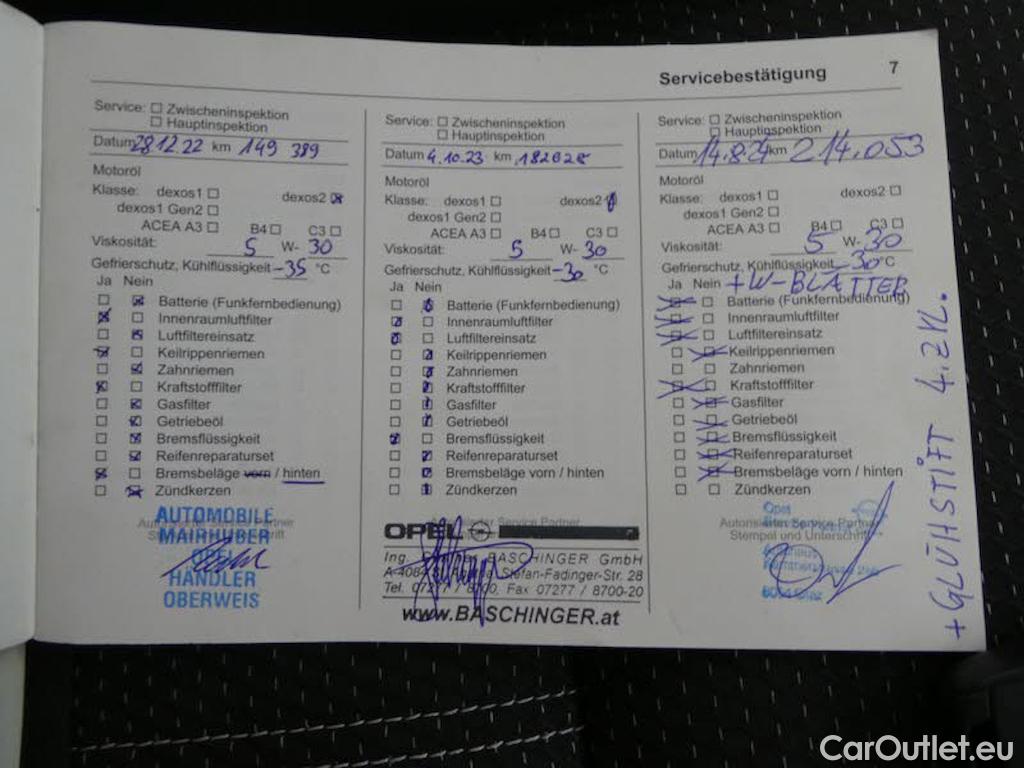 Servicebestätigung 7
Service: Zwischeninspektion
Hauptinspektion
Datum 28.12.22 km 149 389
Motoröl
Klasse: dexos1 dexos2
dexos1 Gen2
ACEA A3 B4 C3
Viskosität: 5 W- 30
Gefrierschutz, Kühlflüssigkeit -35 °C
Ja Nein
Batterie (Funkfernbedienung)
Innenraumluftfilter
Luftfiltereinsatz
Keilrippenriemen
Zahnriemen
Kraftstofffilter
Gasfilter
Getriebeöl
Bremsflüssigkeit
Reifenreparaturset
Bremsbeläge vorn / hinten
Zündkerzen
AUTOMOBILE
MAIRHUBER
OPEL
HÄNDLER
OBERWEIS
Service: Zwischeninspektion
Hauptinspektion
Datum 4.10.23 km
Motoröl
Klasse: dexos1 dexos2
dexos1 Gen2
ACEA A3 B4 C3
Viskosität: 5 W- 30
Gefrierschutz, Kühlflüssigkeit -30 °C
Ja Nein
Batterie (Funkfernbedienung)
Innenraumluftfilter
Luftfiltereinsatz
Keilrippenriemen
Zahnriemen
Kraftstofffilter
Gasfilter
Getriebeöl
Bremsflüssigkeit
Reifenreparaturset
Bremsbeläge vorn / hinten
Zündkerzen
OPEL
Ing. BASCHINGER GmbH
Stefan-Fadinger-Str. 28
Tel. 07277 / 8700, Fax 07277 / 8700-20
www.BASCHINGER.at
Service: Zwischeninspektion
Hauptinspektion
Datum 14.8.24 km 214.053
Motoröl
Klasse: dexos1 dexos2
dexos1 Gen2
ACEA A3 B4 C3
Viskosität: 5 W- 30
Gefrierschutz, Kühlflüssigkeit -30 °C
Ja Nein +W-BLÄTTER
Batterie (Funkfernbedienung)
Innenraumluftfilter
Luftfiltereinsatz
Keilrippenriemen
Zahnriemen
Kraftstofffilter
Gasfilter
Getriebeöl
Bremsflüssigkeit
Reifenreparaturset
Bremsbeläge vorn / hinten
Zündkerzen
Opel
Autorisierter Service Partner
Stempel und Unterschrift
+ GLÜHSTIFT 4. ZYL.
CarOutlet.eu